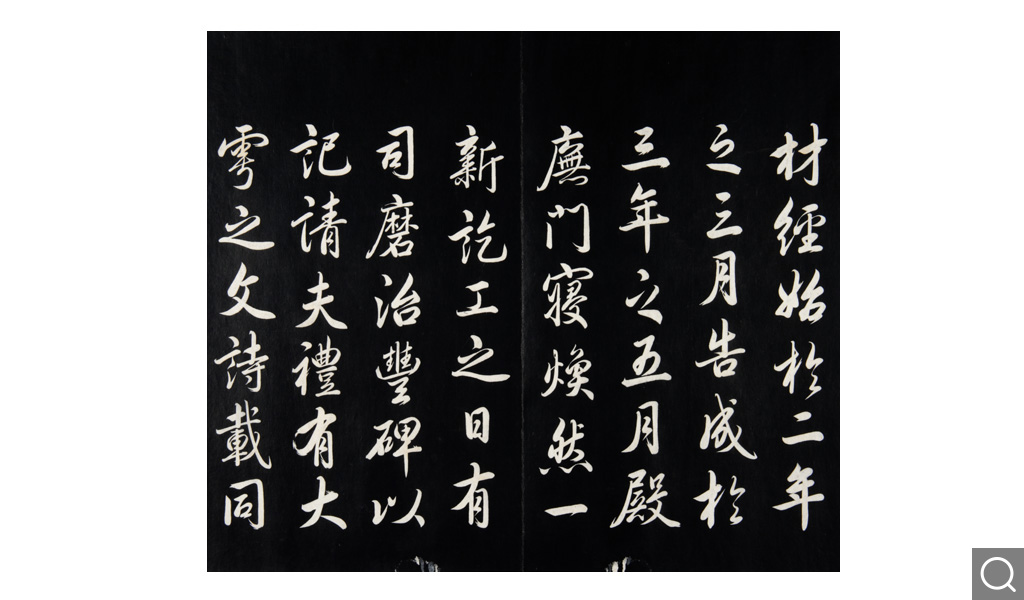 材經始於二年
之三月告成於
三年之五月殿
廡門寢煥然一
新訖工之日有
司磨治豐碑以
記請夫禮有大
雩之文詩載同